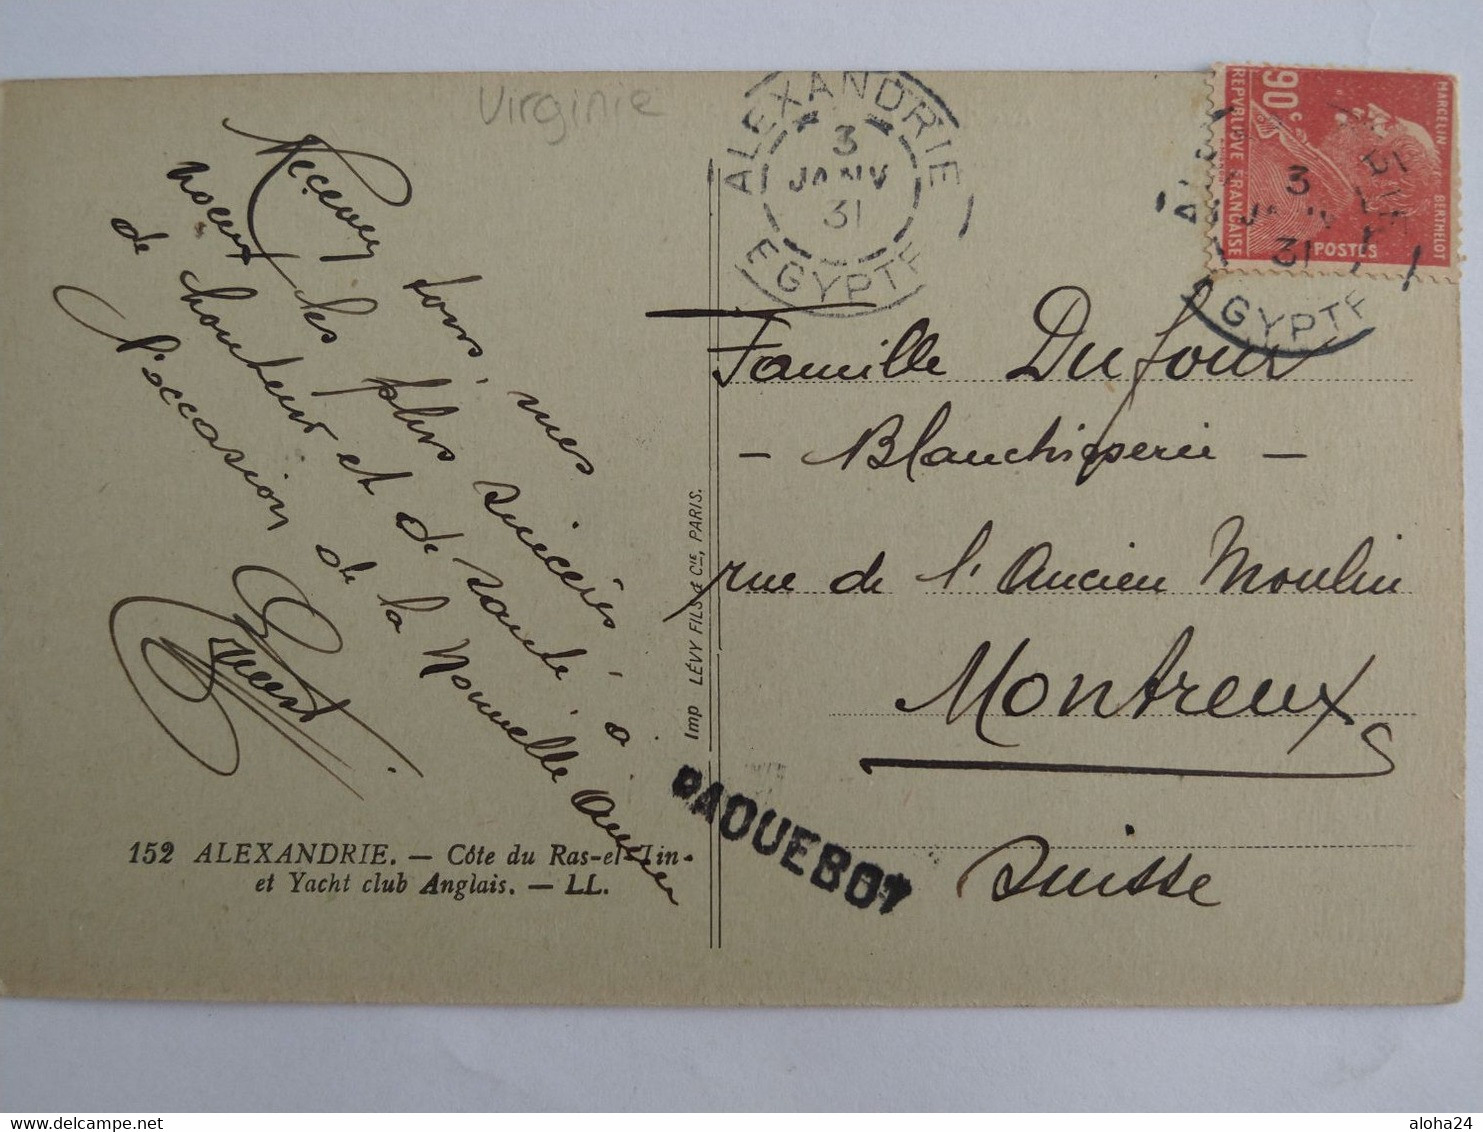 Virginie
ALEXANDRIE
3
JANV
31
EGYPTE
90c
REPVBLIQVE FRANÇAISE
POSTES
MARCELIN BERTHELOT
3
31
GYPTE
Recevez tous mes
voeux les plus sincères
de bonheur et de santé à
l'occasion de la Nouvelle Année
Ernest
Famille Dufour
- Blanchisserie -
rue de l'Ancien Moulin
Montreux
Suisse
PAQUEBOT
Imp LÉVY FILS & Cie, PARIS.
152 ALEXANDRIE. — Côte du Ras-el-Tin
et Yacht club Anglais. — LL.
delcampe.net
aloha24